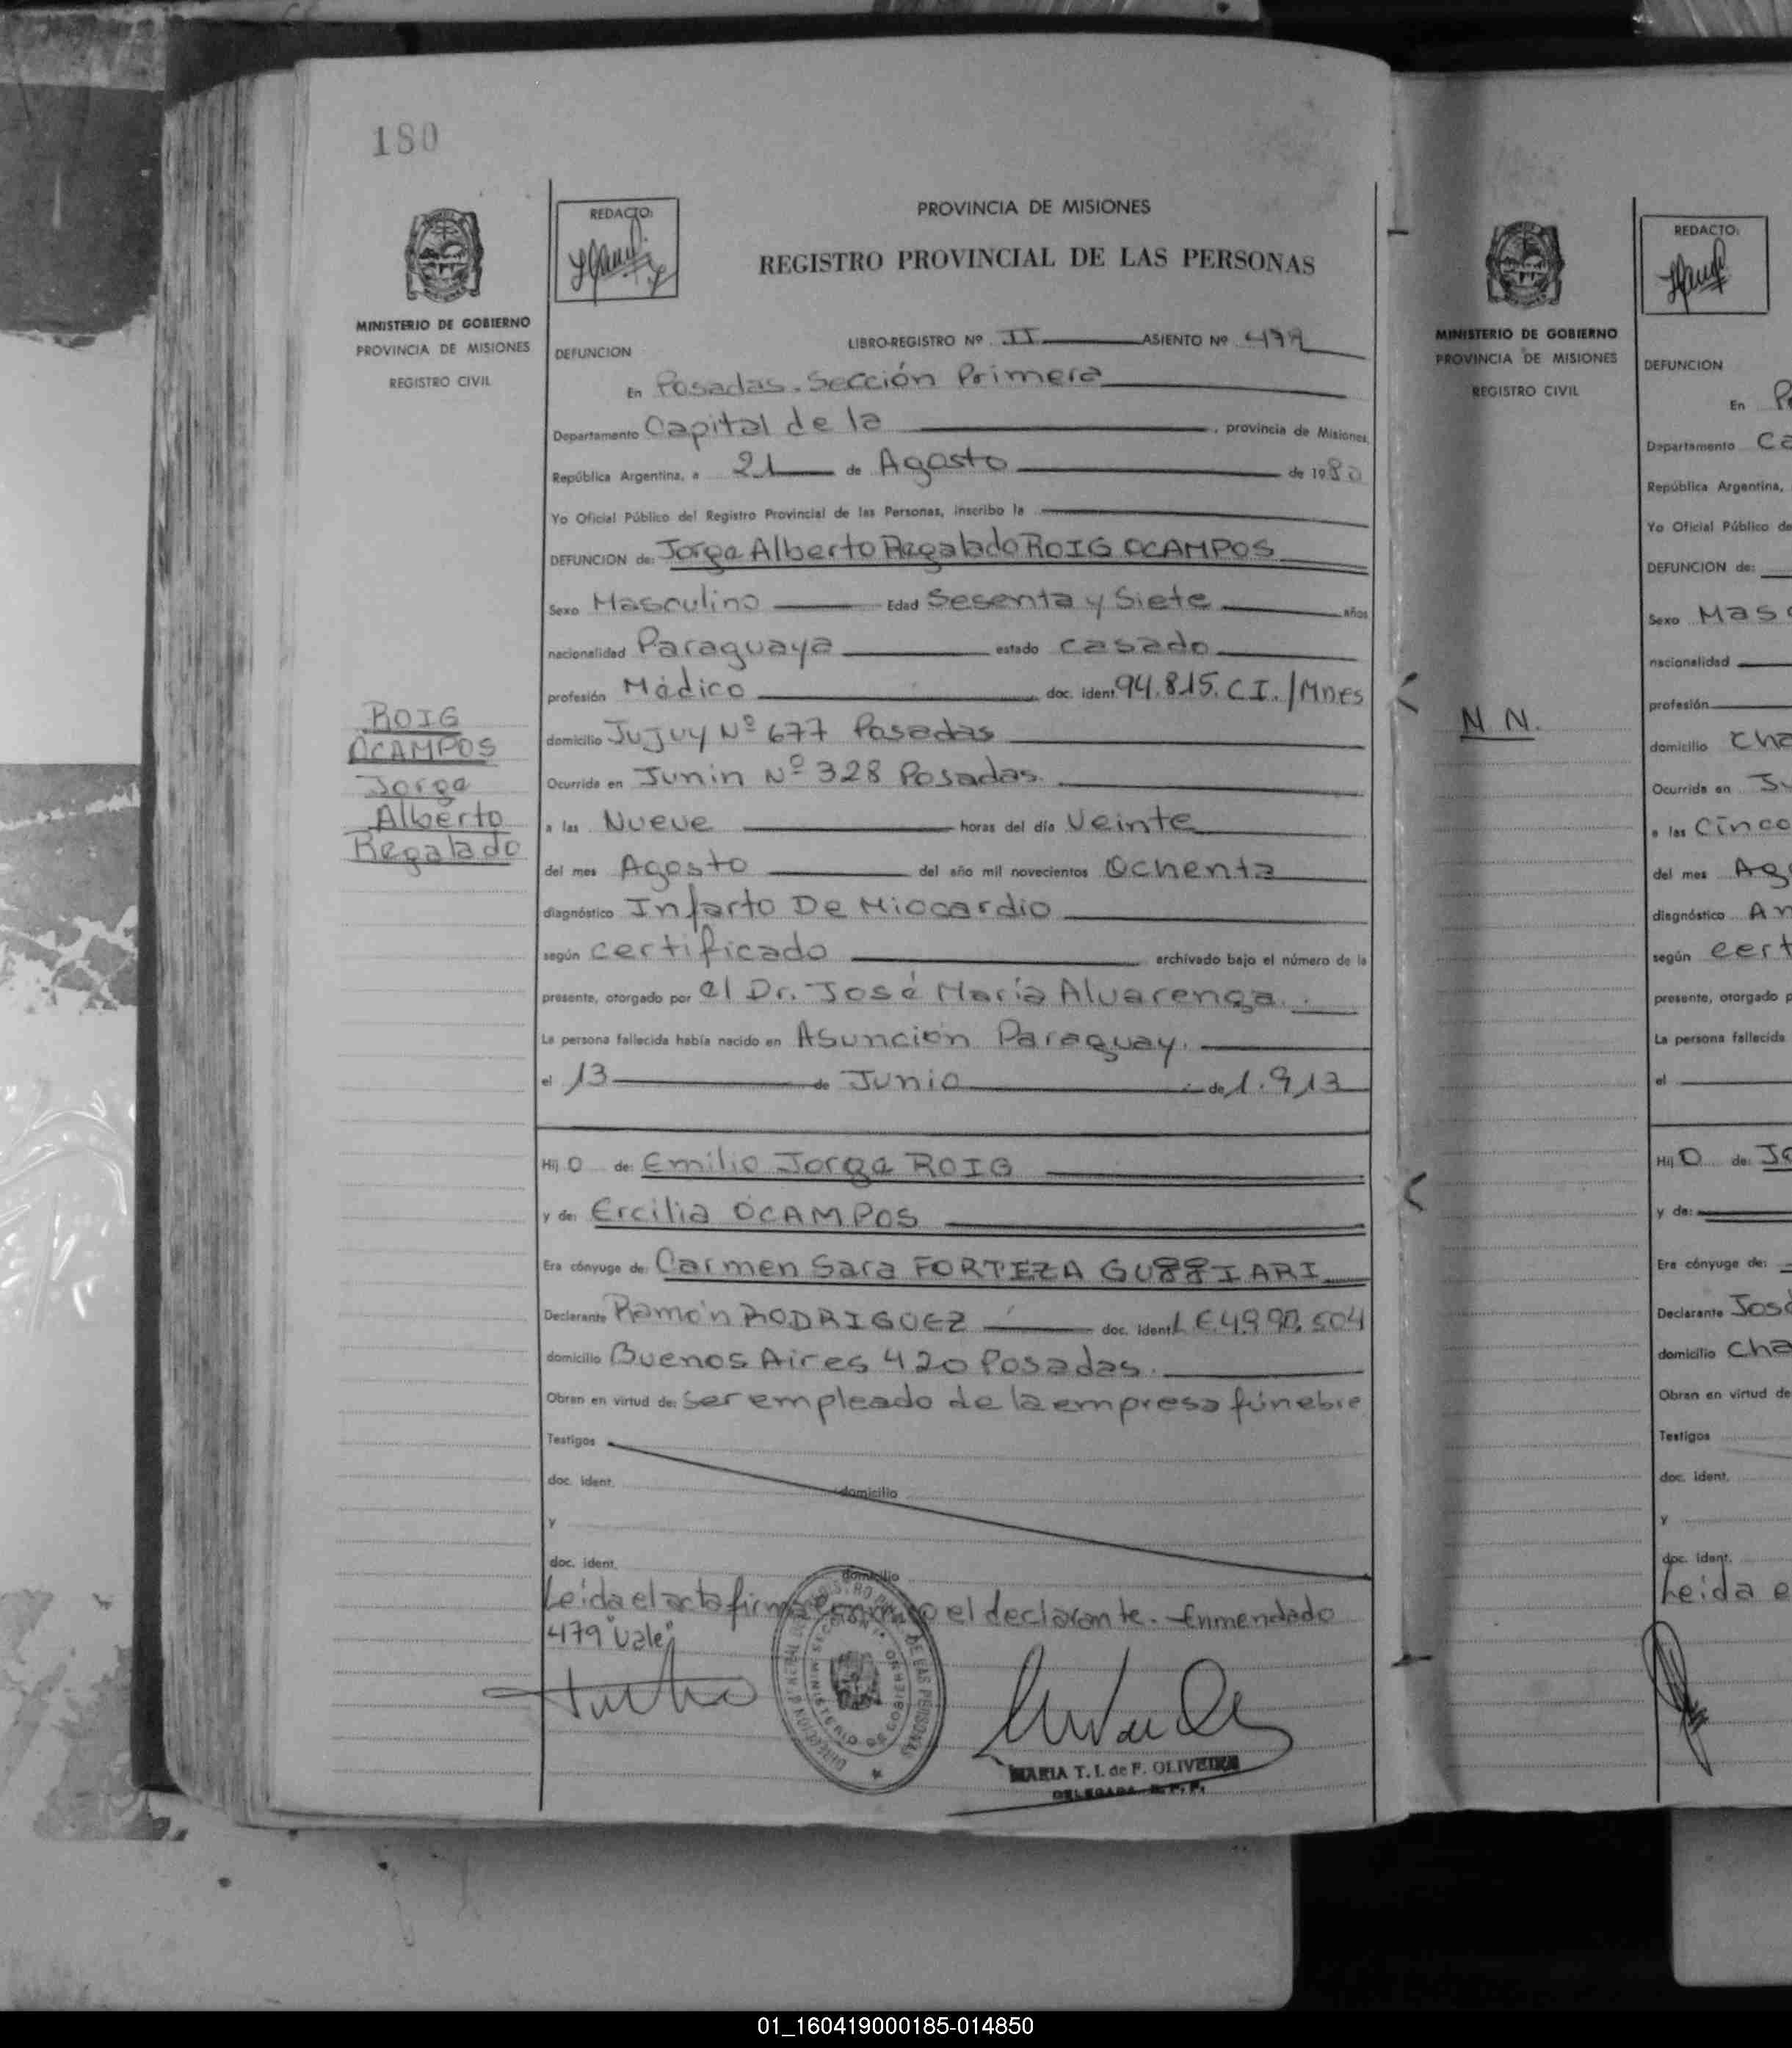 180
MINISTERIO DE GOBIERNO
PROVINCIA DE MISIONES
REGISTRO CIVIL
REDACTO:
PROVINCIA DE MISIONES
REGISTRO PROVINCIAL DE LAS PERSONAS
LIBRO-REGISTRO Nº II ASIENTO Nº 479
DEFUNCION
En Posadas. Sección Primera
Departamento Capital de la , provincia de Misiones,
República Argentina, a 21 de Agosto de 1980
Yo Oficial Público del Registro Provincial de las Personas, inscribo la
DEFUNCION de: Jorge Alberto Regalado ROIG OCAMPOS
Sexo Masculino Edad Sesenta y Siete años
nacionalidad Paraguaya estado casado
profesión Médico doc. ident. 94.815. C.I./Mnes
domicilio Jujuy Nº 677 Posadas
Ocurrida en Junin Nº 328 Posadas.
a las Nueve horas del día Veinte
del mes Agosto del año mil novecientos Ochenta
diagnóstico Infarto De Miocardio
según certificado archivado bajo el número de la
presente, otorgado por el Dr. José María Alvarenga.
La persona fallecida había nacido en Asunción Paraguay.
el 13 de Junio de 1.913
ROIG
OCAMPOS
Jorge
Alberto
Regalado
Hij o de: Emilio Jorge ROIG
y de: Ercilia OCAMPOS
Era cónyuge de: Carmen Sara FORTEZA GUGGIARI
Declarante Ramón RODRIGUEZ doc. ident. L.E.
domicilio Buenos Aires 420 Posadas.
Obran en virtud de: ser empleado de la empresa fúnebre
Testigos
doc. ident. domicilio
y
doc. ident. domicilio
Leída el acta firma conmigo el declarante. Enmendado
479 "Vale"
MINISTERIO DE GOBIERNO
MARIA T. I. de F. OLIVEIRA
DELEGADA R.P.P.
MINISTERIO DE GOBIERNO
PROVINCIA DE MISIONES
REGISTRO CIVIL
N.N.
REDACTO:
DEFUNCION
En Po
Departamento Ca
República Argentina,
Yo Oficial Público de
DEFUNCION de:
Sexo Mas
nacionalidad
profesión
domicilio Cha
Ocurrida en
a las Cinco
del mes Ag
diagnóstico
según cert
presente, otorgado p
La persona fallecida
el
Hij o de:
y de:
Era cónyuge de:
Declarante José
domicilio Cha
Obran en virtud de
Testigos
doc. ident.
y
doc. ident.
Leída e
01_160419000185-014850